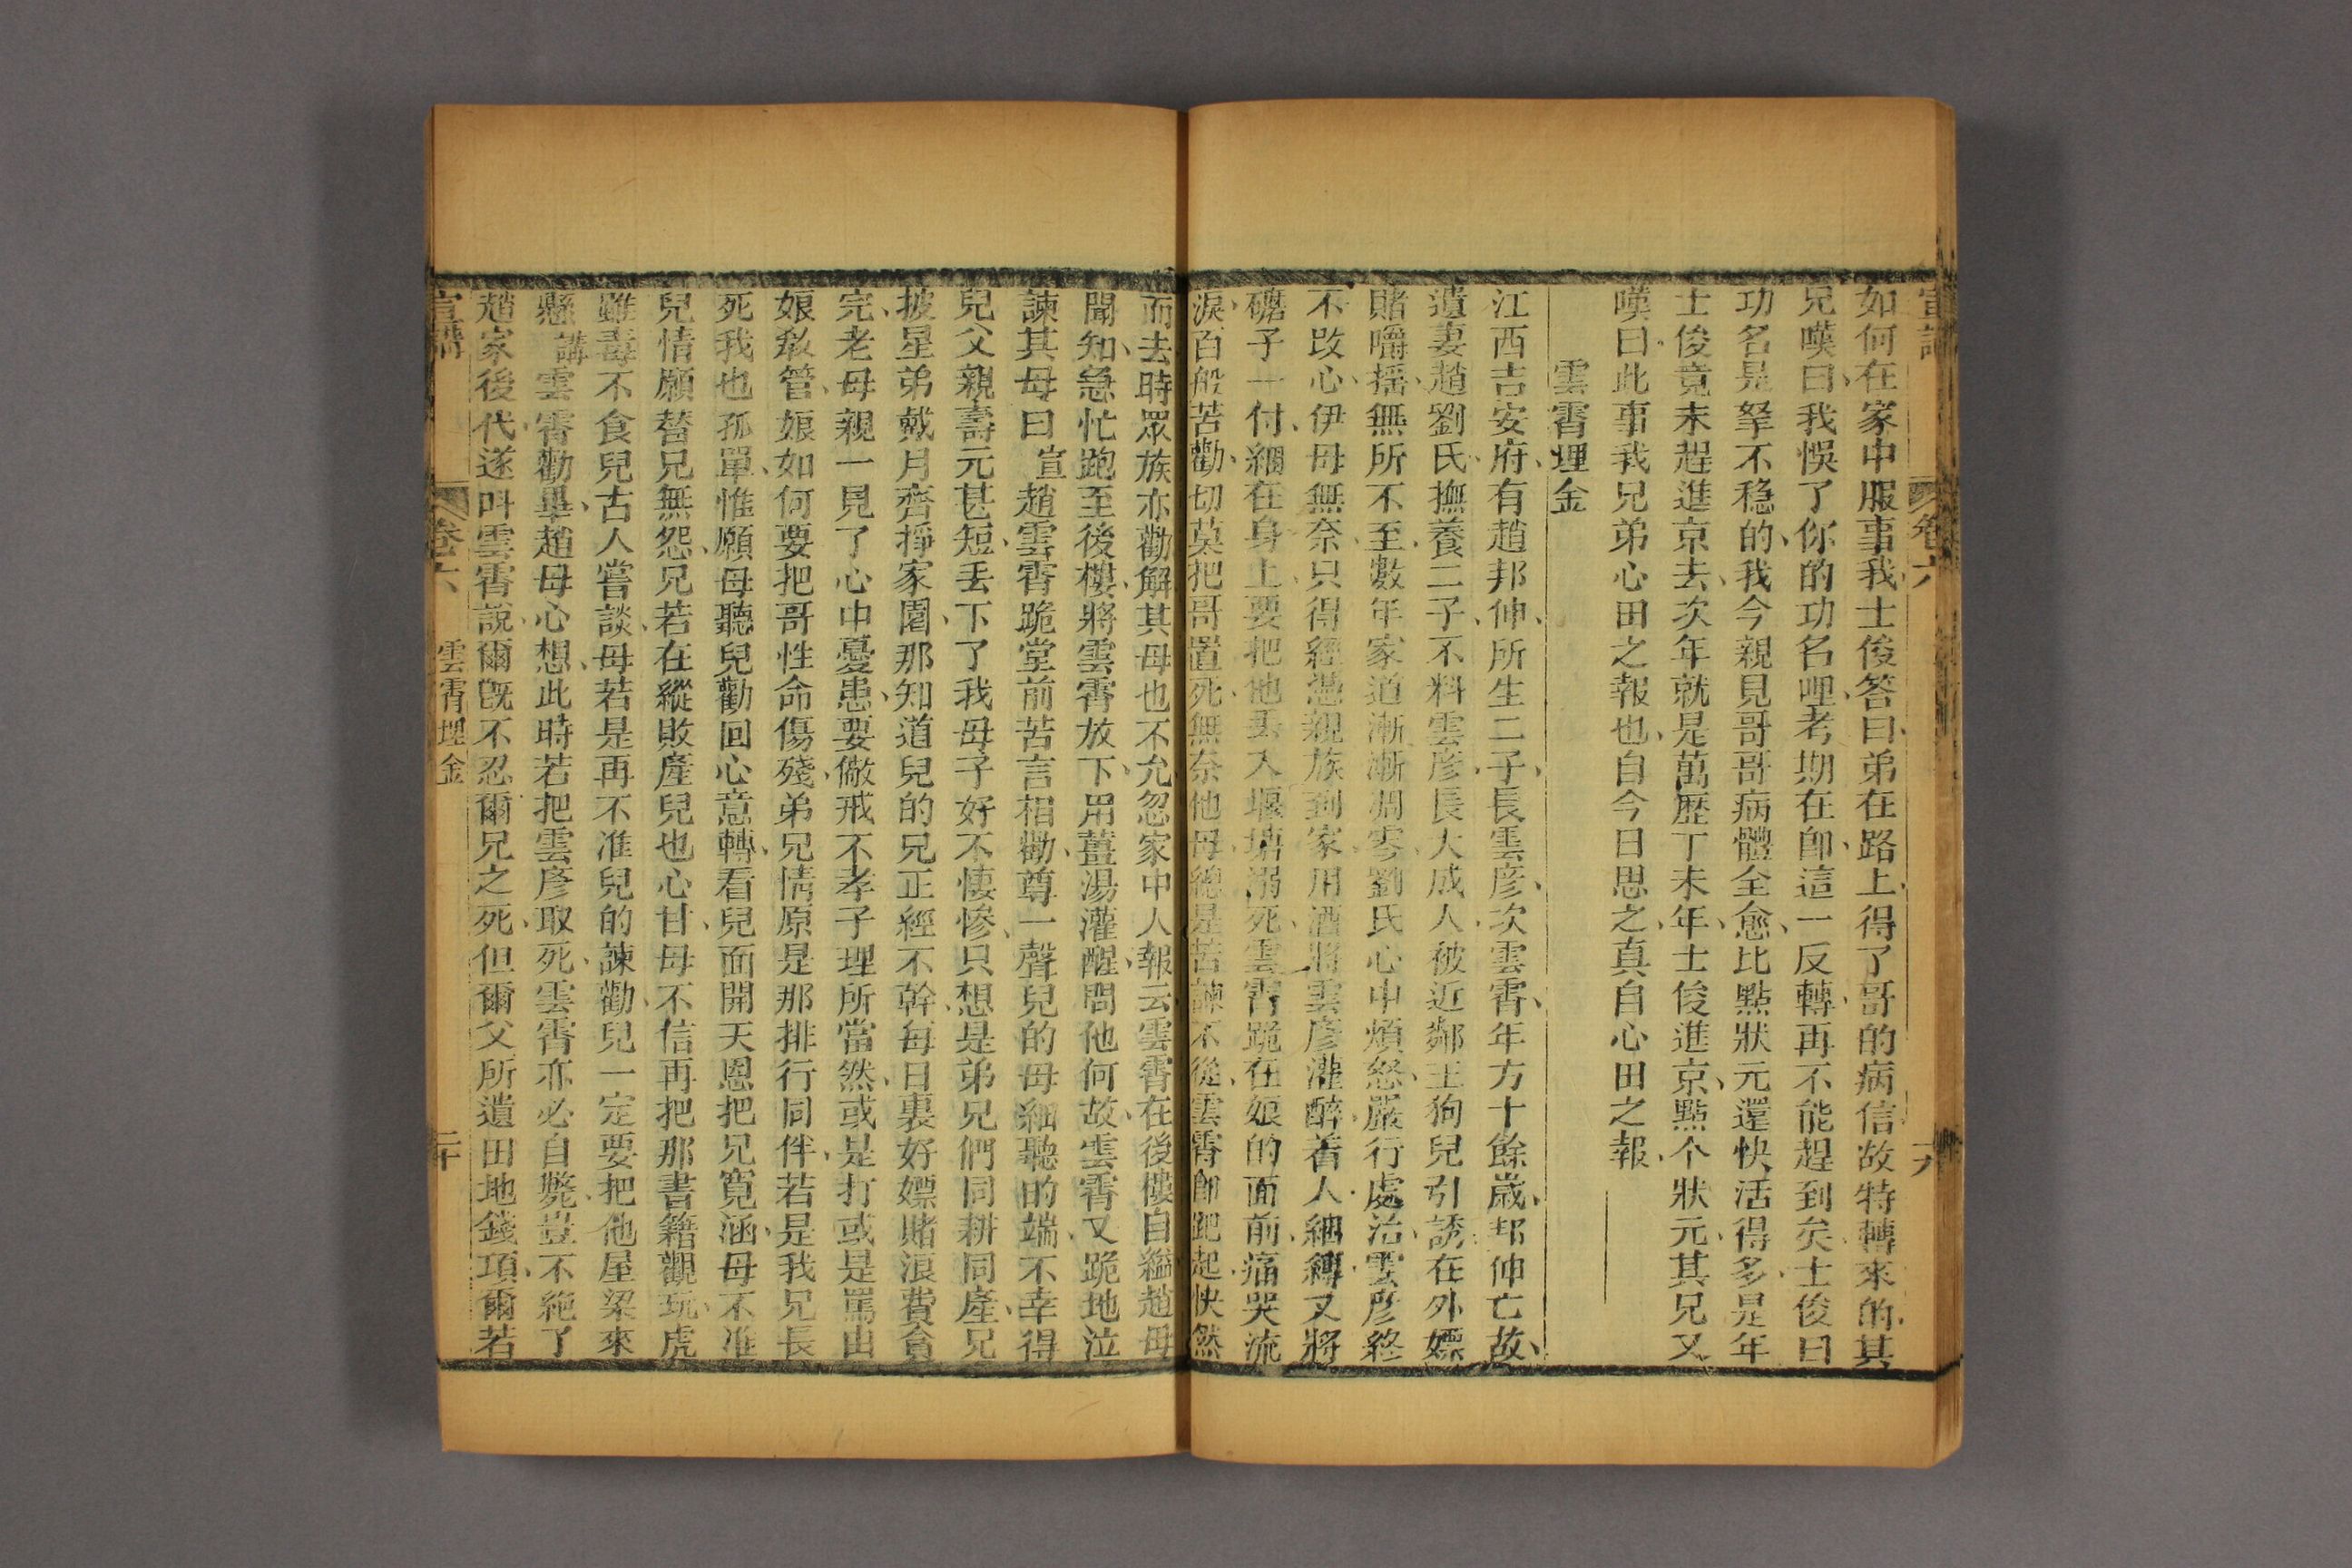 如何在家中服事我士俊答曰弟在路上得了哥的病信故特轉來的其
兄嘆曰我悞了你的功名哩考期在卽這一反轉再不能趕到矣士俊曰
功名是拏不穏的我今親見哥哥病體全愈比點狀元還快活得多是年
士俊竟未趕進京去次年就是萬歷丁未年士俊進京點个狀元其兄又
嘆曰此事我兄弟心田之報也自今日思之真自心田之報
雲霄埋金
江西吉安府有趙邦伸所生二子長雲彥次雲霄年方十餘歲邦伸亡故
遺妻趙劉氏撫養二子不料雲彥長大成人被近鄰王狗兒引誘在外嫖
賭嚼摇無所不至數年家道漸漸凋零劉氏心中煩怒嚴行處治雲彥終
不改心伊母無奈只得經憑親族到家用酒將雲彥灌醉着人綑縛又將
礳子一付綑在身上要把他丢入堰塘溺死雲霄跪在娘的面前痛哭流
淚百般苦勸切莫把哥置死無奈他母總是苦諫不從雲霄卽跑起怏然
而去時眾族亦勸解其母也不允忽家中人報云雲霄在後樓自縊趙母
聞知急忙跑至後樓將雲霄放下用薑湯灌醒問他何故雲霄又跪地泣
諫其母曰宣趙雲霄跪堂前苦言相勸尊一聲兒的母細聽的端不幸得
兒父親壽元甚短丢下了我母子好不悽慘只想是弟兄們同耕同產兄
披星弟戴月齊掙家園那知道兒的兄正經不幹每日裏好嫖賭浪費貪
完老母親一見了心中憂患要儆戒不孝子理所當然或是打或是罵由
娘敎管娘如何要把哥性命傷殘弟兄情原是那排行同伴若是我兄長
死我也孤單惟願母聽兒勸回心意轉看兒面開天恩把兄寬涵母不准
兒情願替兄無怨兄若在縱敗產兒也心甘母不信再把那書籍觀玩虎
雖毒不食兒古人嘗談母若是再不准兒的諫勸兒一定要把他屋梁來
懸講雲霄勸畢趙母心想此時若把雲彥取死雲霄亦必自斃豈不絶了
趙家後代遂叫雲霄說爾旣不忍爾兄之死但爾父所遺田地錢項爾若
宣講 卷六 雲霄埋金 二十